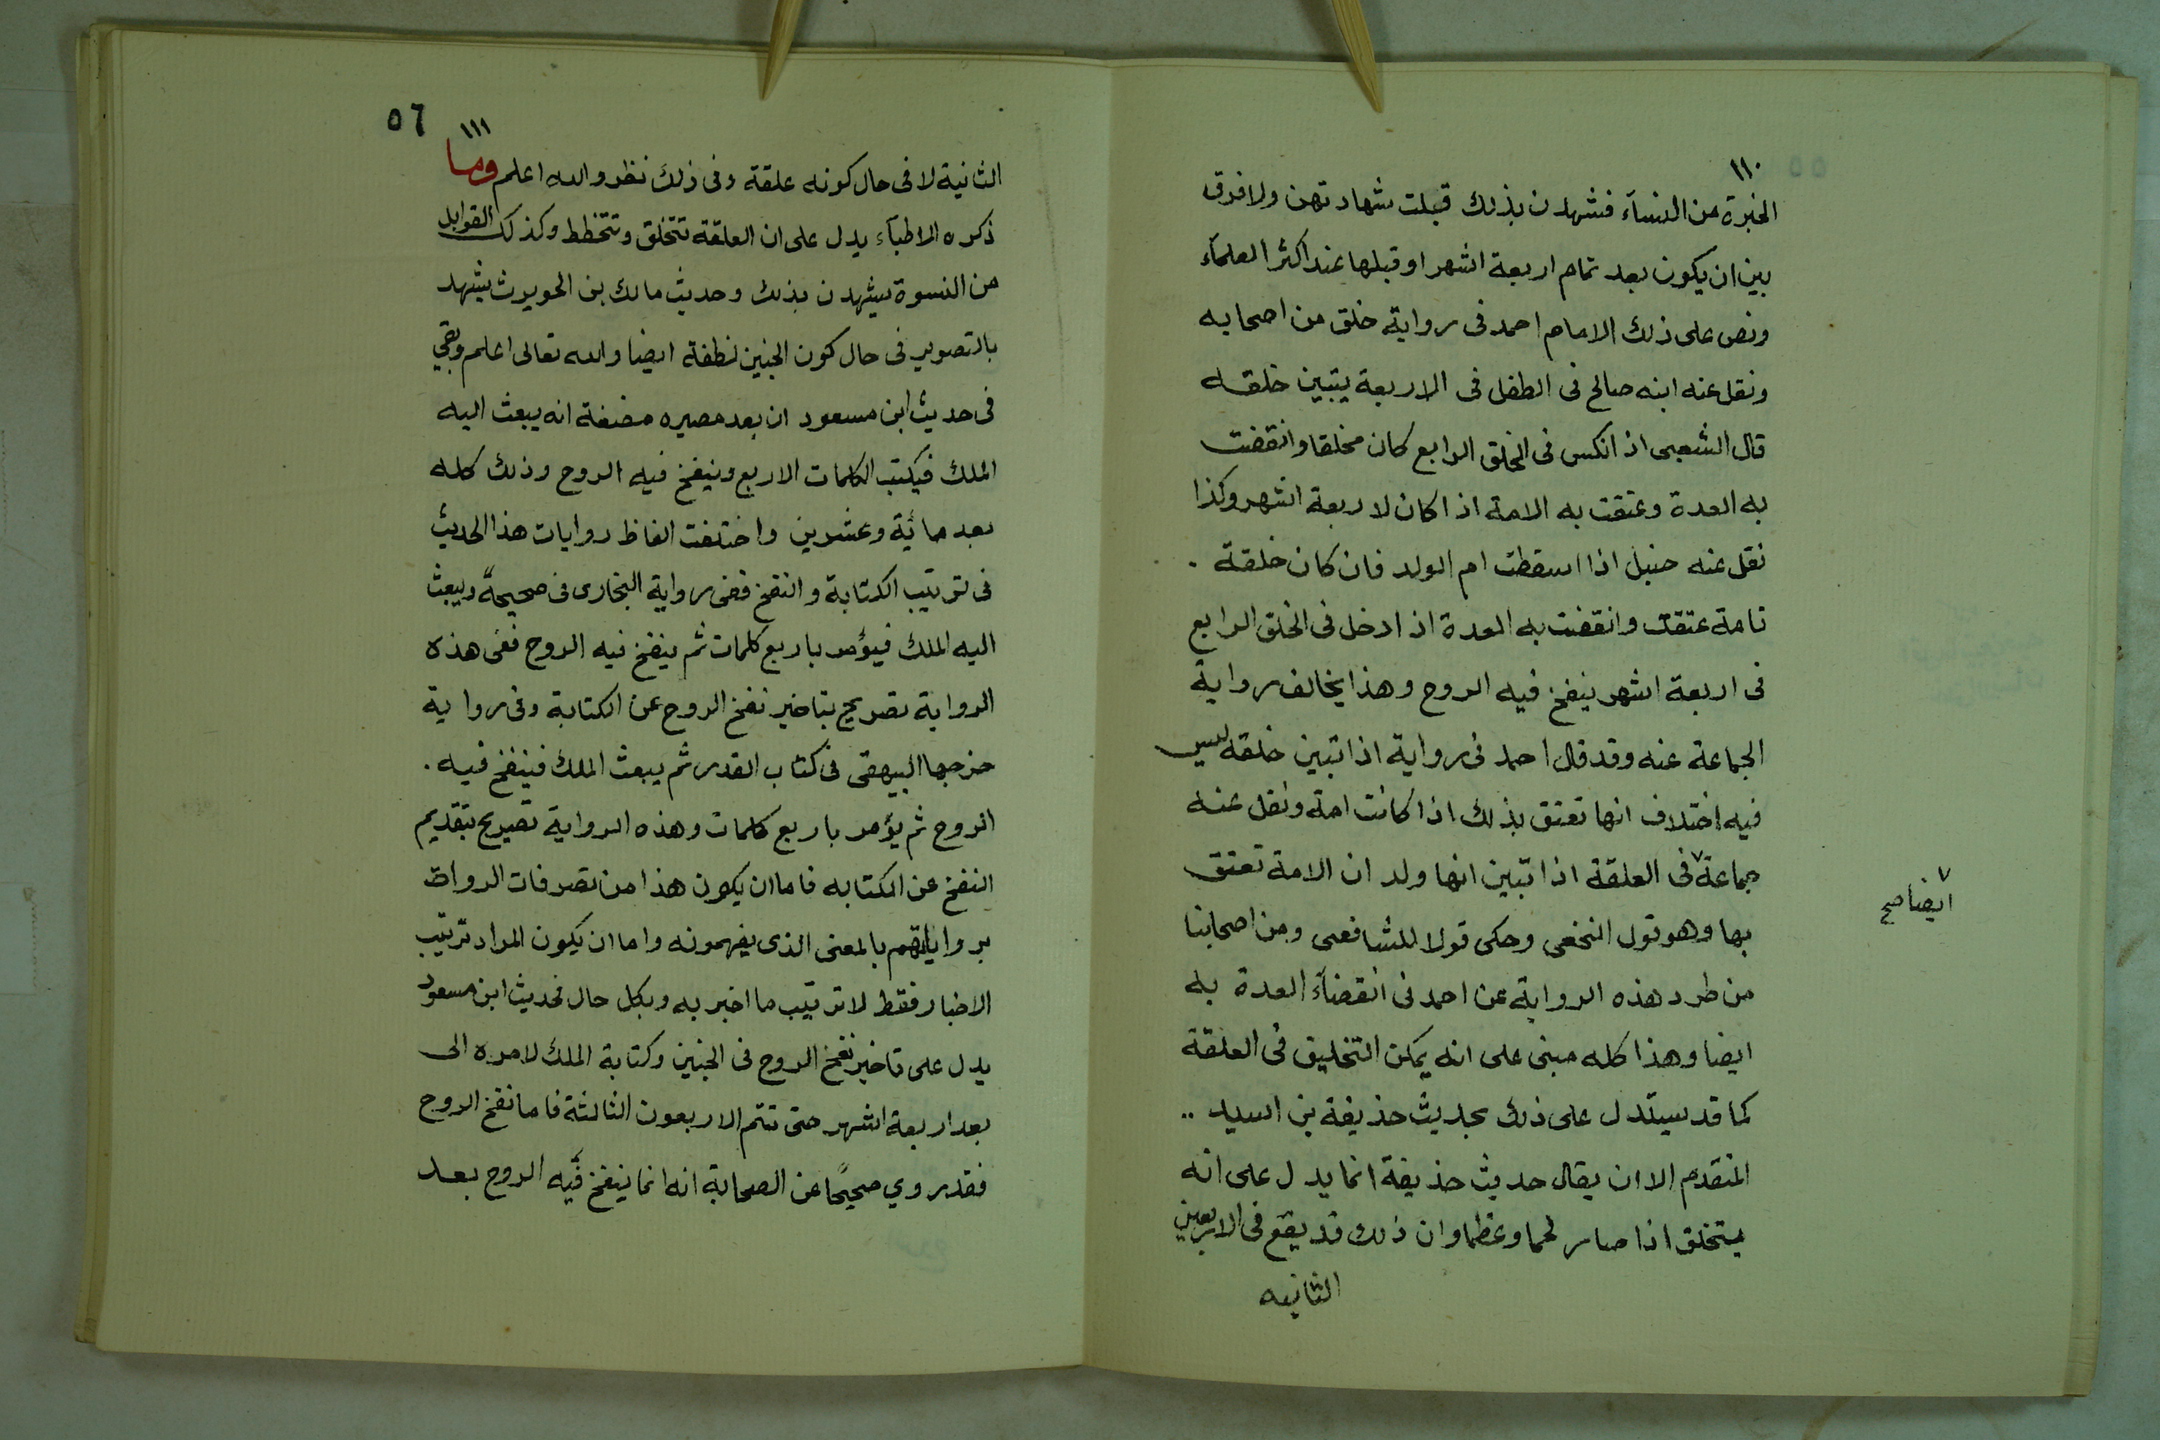 ١١٠
الخبرة من النسآء فشهدن بذلك قبلت شهادتهن ولا فرق
بين ان يكون بعد تمام اربعة اشهر او قبلها عند اكثر العلمآء
ونص على ذلك الامام احمد فى رواية خلق من اصحابه
ونقل عنه ابنه صالح فى الطفل فى الاربعة يتبين خلقه
قال الشعبى اذ انكس فى الخلق الرابع كان مخلقا وانقضت
به العدة وعتقت به الامة اذا كان لاربعة اشهر وكذا
نقل عنه حنبل اذا اسقطت ام الولد فان كان خلقة .
تامة عتقت وانقضت به العدة اذا دخل فى الخلق الرابع
فى اربعة اشهر ينفخ فيه الروح وهذا يخالف رواية
الجماعة عنه وقد قال احمد فى رواية اذا تبين خلقه ليس
فيه اختلاف انها تعتق بذلك اذا كانت امة ونقل عنه
جماعة ٧ فى العلقة اذا تبين انها ولد ان الامة تعتق
٧ ايضا صح
بها وهو قول النخعى وحكى قولا للشافعى ومن اصحابنا
من طرد هذه الرواية عن احمد فى انقضآء العدة به
ايضا وهذا كله مبنى على انه يمكن التخليق فى العلقة
كما قد سيتدل على ذلك بحديث حذيفة بن اسيد ..
المتقدم الا ان يقال حديث حذيفة انما يدل على انه
يتخلق اذا صار لحما وعظما وان ذلك قد يقع فى الاربعين
الثانيه
٥٦
١١١
الثانية لا فى حال كونه علقة وفى ذلك نظر والله اعلم وما
ذكره الاطبآء يدل على ان العلقة تتخلق وتتخطط وكذلك القوابل
من النسوة يشهدن بذلك وحديث مالك بن الحويرث يشهد
بالتصوير فى حال كون الجنين نطفة ايضا والله تعالى اعلم وبقي
فى حديث ابن مسعود ان بعد مصيره مضغة انه يبعث اليه
الملك فيكتب الكلمات الاربع وينفخ فيه الروح وذلك كله
بعد مائة وعشرين واختلفت الفاظ روايات هذا الحديث
فى ترتيب الكتابة والنفخ ففى رواية البخارى فى صحيحه ويبعث
اليه الملك فيؤمر باربع كلمات ثم ينفخ فيه الروح ففى هذه
الرواية تصريح بتاخير نفخ الروح عن الكتابة وفى رواية
خرجها البيهقى فى كتاب القدر ثم يبعث الملك فينفخ فيه .
الروح ثم يؤمر باربع كلمات وهذه الرواية تصريح بتقديم
النفخ عن الكتابه فاما ان يكون هذا من تصرفات الرواة
برواياتهم بالمعنى الذى يفهمونه واما ان يكون المراد ترتيب
الاخبار فقط لا ترتيب ما اخبر به وبكل حال فحديث ابن مسعود
يدل على تاخير نفخ الروح فى الجنين وكتابة الملك لامره الى
بعد اربعة اشهر حتى تتم الاربعون الثالثة فاما نفخ الروح
فقد روي صحيحًا عن الصحابة انه انما ينفخ فيه الروح بعد